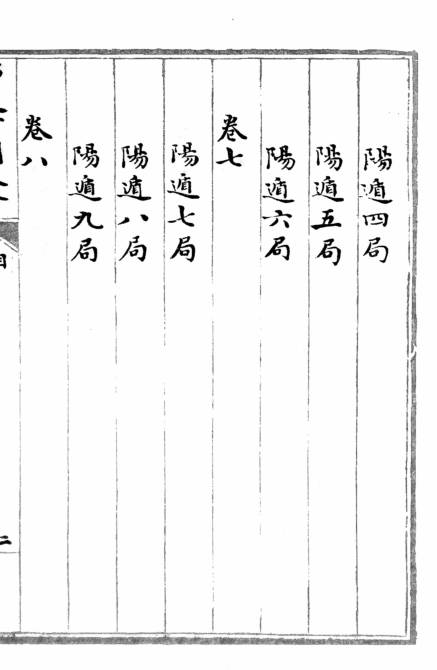 陽遁四局
陽遁五局
陽遁六局
卷七
陽遁七局
陽遁八局
陽遁九局
卷八